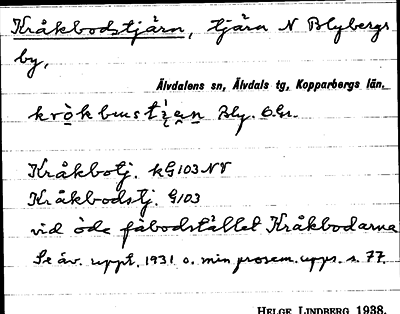 Kråkbodstjärn, tjärn N Blybergs
by,
Älvdalens sn, Älvdals tg, Kopparbergs län.
Bly. O.Gr.
Kråkbotj. kG103NV
Kråkbodstj. G103
vid öde fäbodstället Kråkbodarna
Se äv. uppt. 1931 o. min prosem.upps. s. 77.
HELGE LINDBERG 1938.